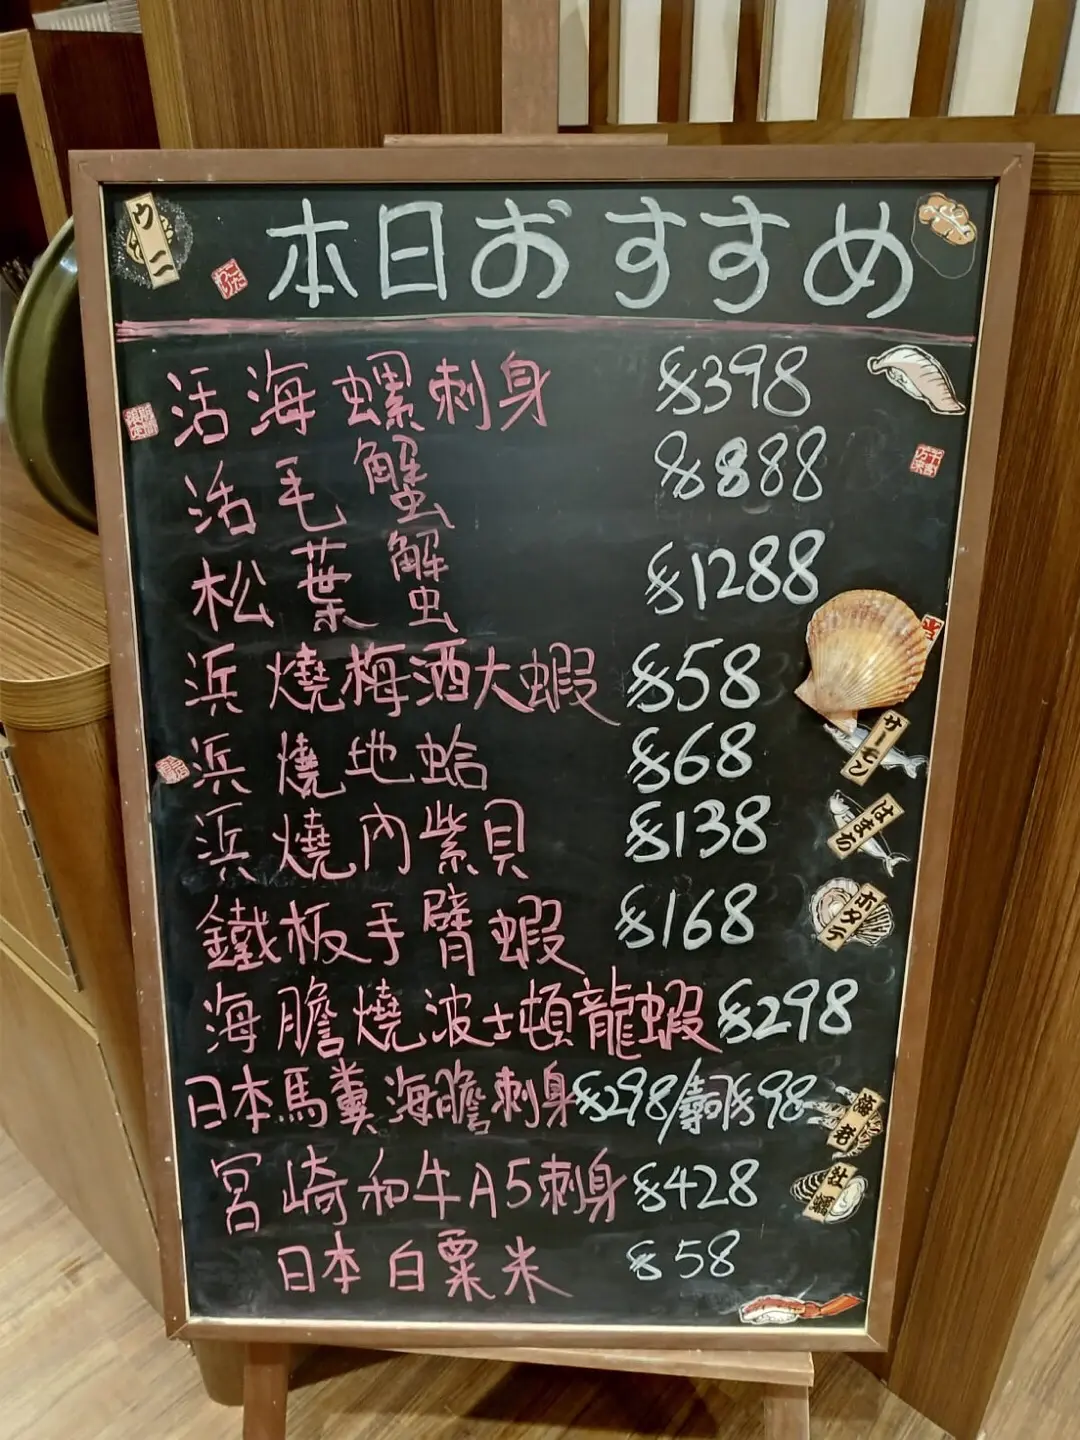 ウニ
本日おすすめ
活海螺刺身 $398
活毛蟹 $888
松葉蟹 $1288
浜燒梅酒大蝦 $58
サーモン
浜燒地蛤 $68
はまち
浜燒內紫貝 $138
ホタテ
鐵板手臂蝦 $168
海膽燒波士頓龍蝦 $298
日本馬糞海膽刺身$298/壽司$98
宮崎和牛A5刺身 $428
牡蠣
日本白粟米 $58